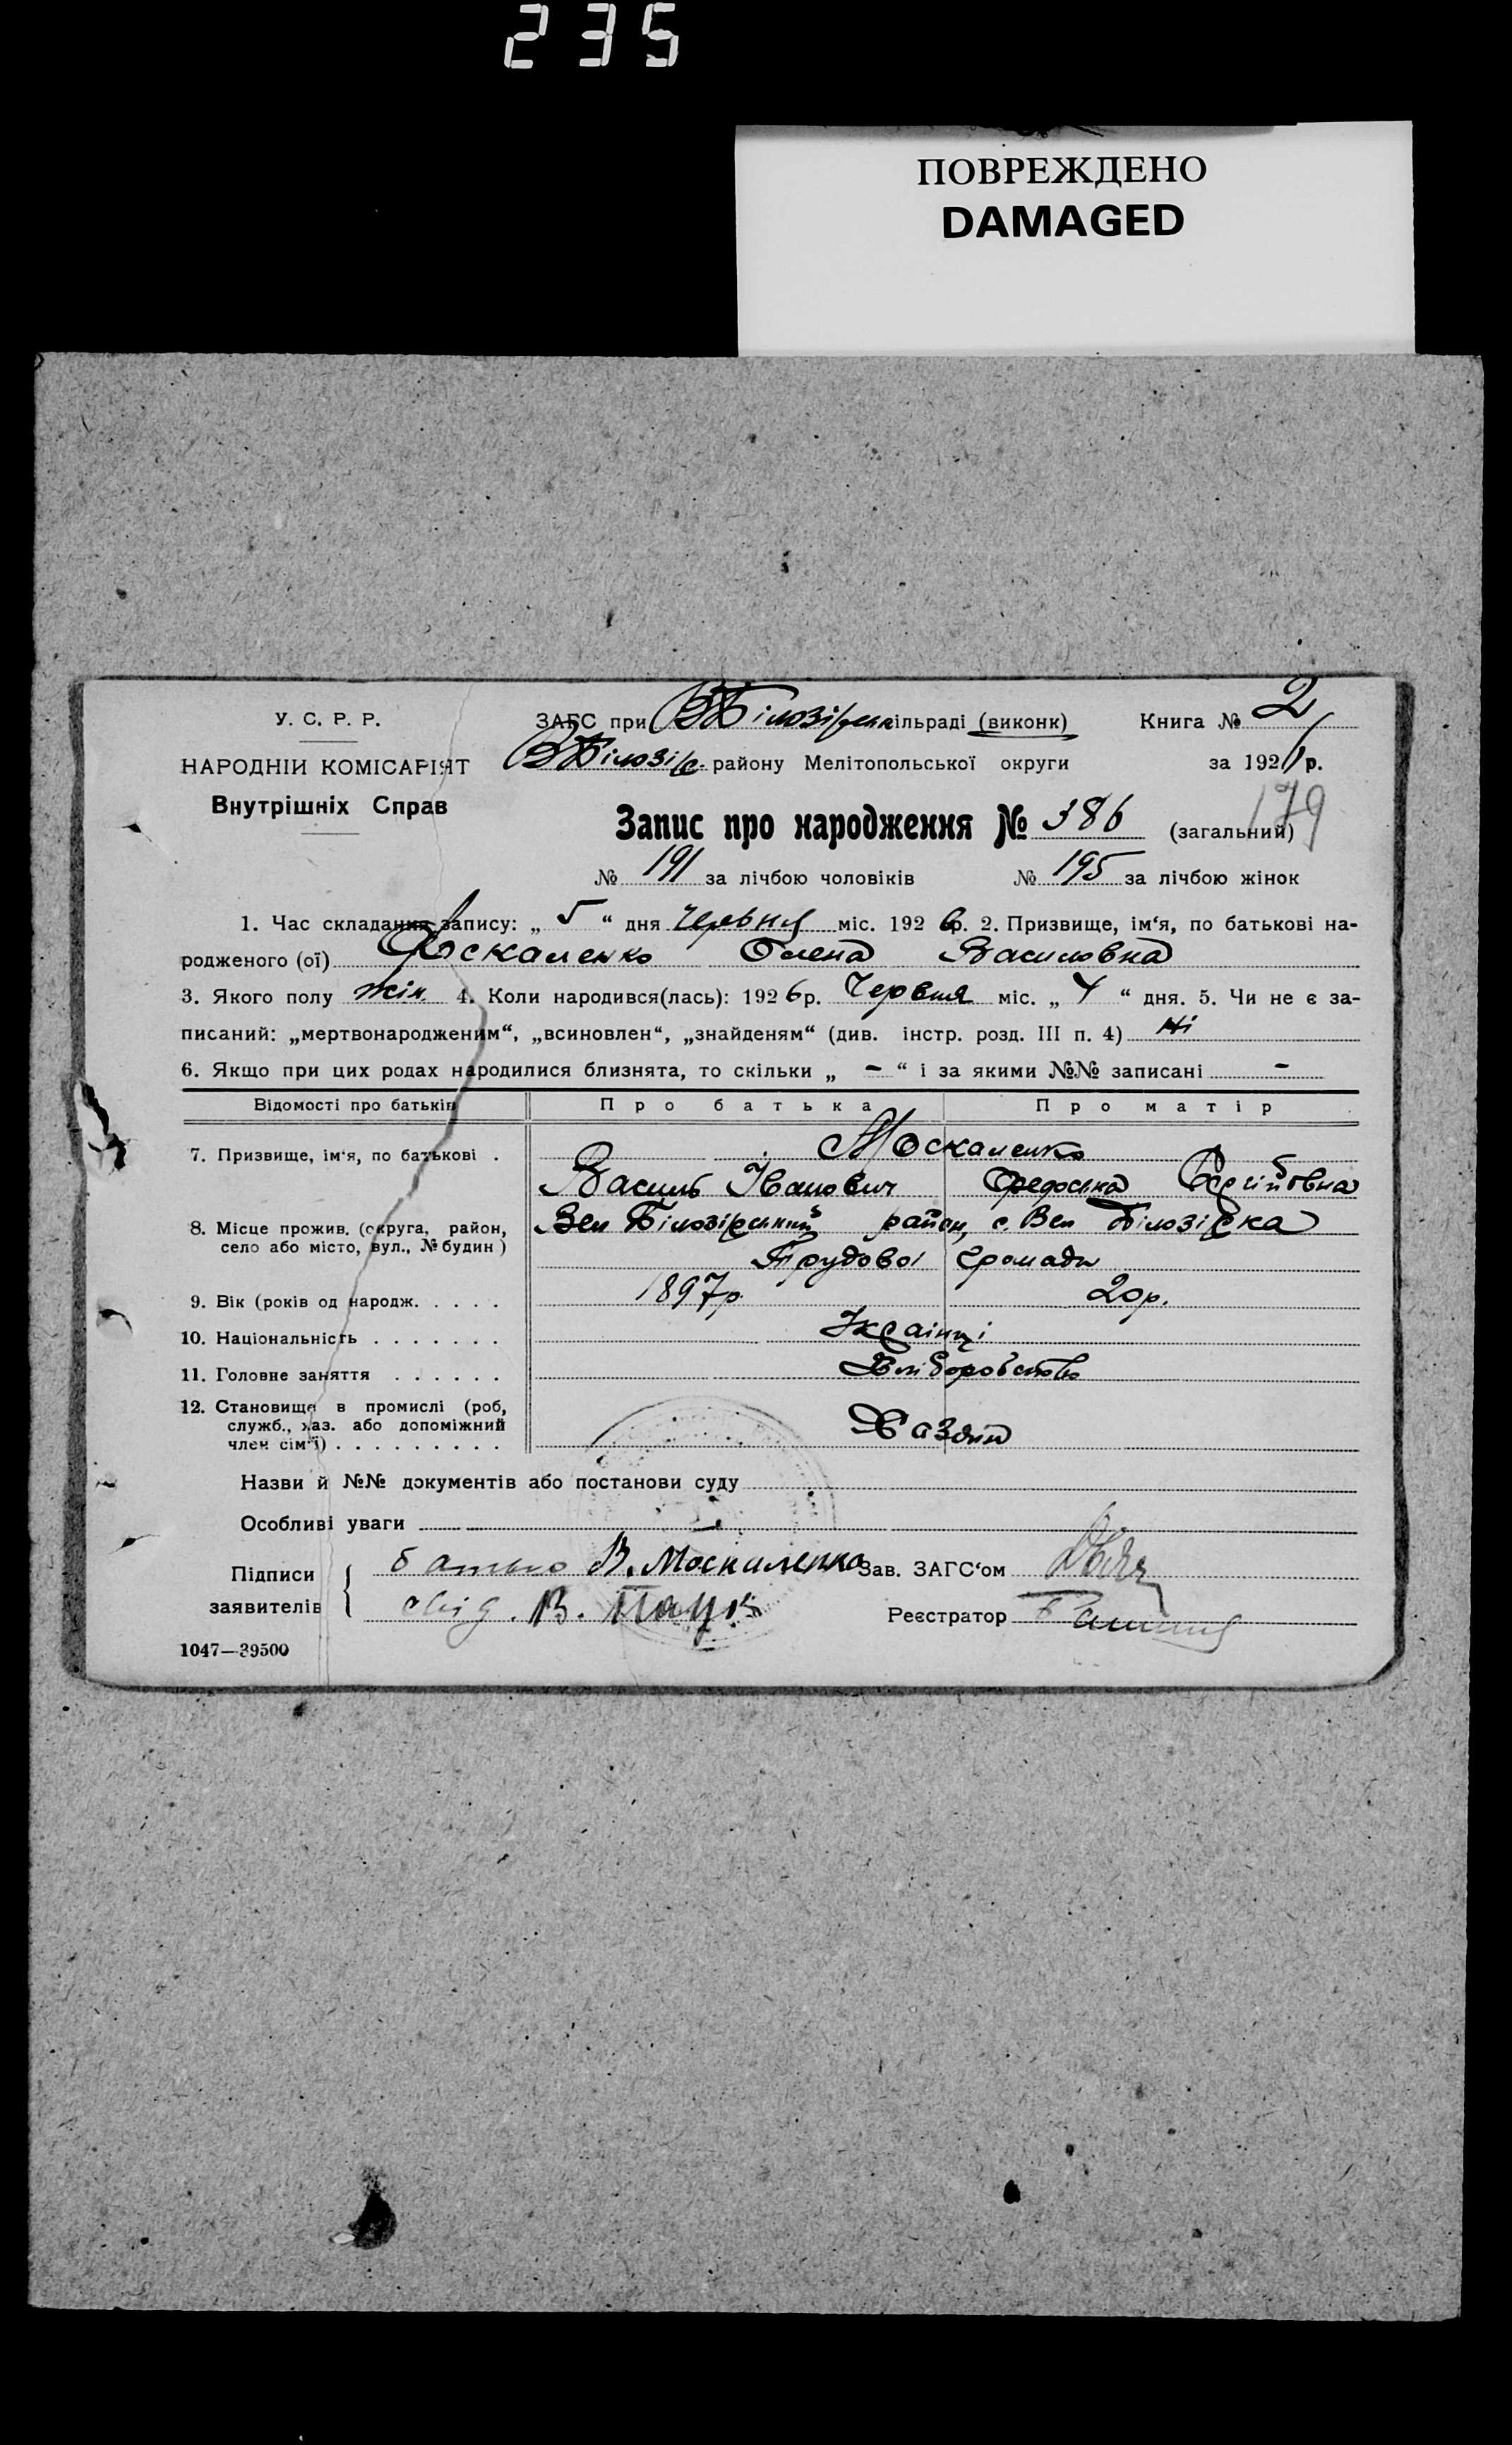 235
ПОВРЕЖДЕНО
DAMAGED
У. С. Р. Р.
НАРОДНІЙ КОМІСАРІЯТ
Внутрішніх Справ
ЗАГС при ВБілозірськ ільраді (виконк) Книга № 2
ВБілозір. району Мелітопольської округи за 1926 р.
179
Запис про народження № 386 (загальний)
№ 191 за лічбою чоловіків № 195 за лічбою жінок
1. Час складання запису: „ 5 “ дня Червня міс. 192 6 р. 2. Призвище, ім‘я, по батькові на-
родженого (ої) Москаленко Олена Василовна
3. Якого полу жін. 4. Коли народився(лась): 192 6 р. Червня міс. „ 4 “ дня. 5. Чи не є за-
писаний: „мертвонародженим“, „всиновлен“, „знайденям“ (див. інстр. розд. III п. 4) Ні
6. Якщо при цих родах народилися близнята, то скільки „ - “ і за якими №№ записані -
Відомості про батьків Про батька Про матір
7. Призвище, ім‘я, по батькові . Москаленко
Василь Іванович Федоська Сергійовна
8. Місце прожив. (округа, район, село або місто, вул., № будин) Вел Білозірський район, с. Вел Білозірка
Трудової громади
9. Вік (років од народж. . . . . 1897р. 20р.
10. Національність . . . . . . . Українці
11. Головне заняття . . . . . . Хліборобство
12. Становище в промислі (роб,
служб., хаз. або допоміжний
член сім‘ї) . . . . . . . . . Хазяїн
Назви й №№ документів або постанови суду
Особливі уваги
Підписи заявителів { батько В. Москаленко Зав. ЗАГС‘ом
свід. В. Пацук Реєстратор
1047—39500